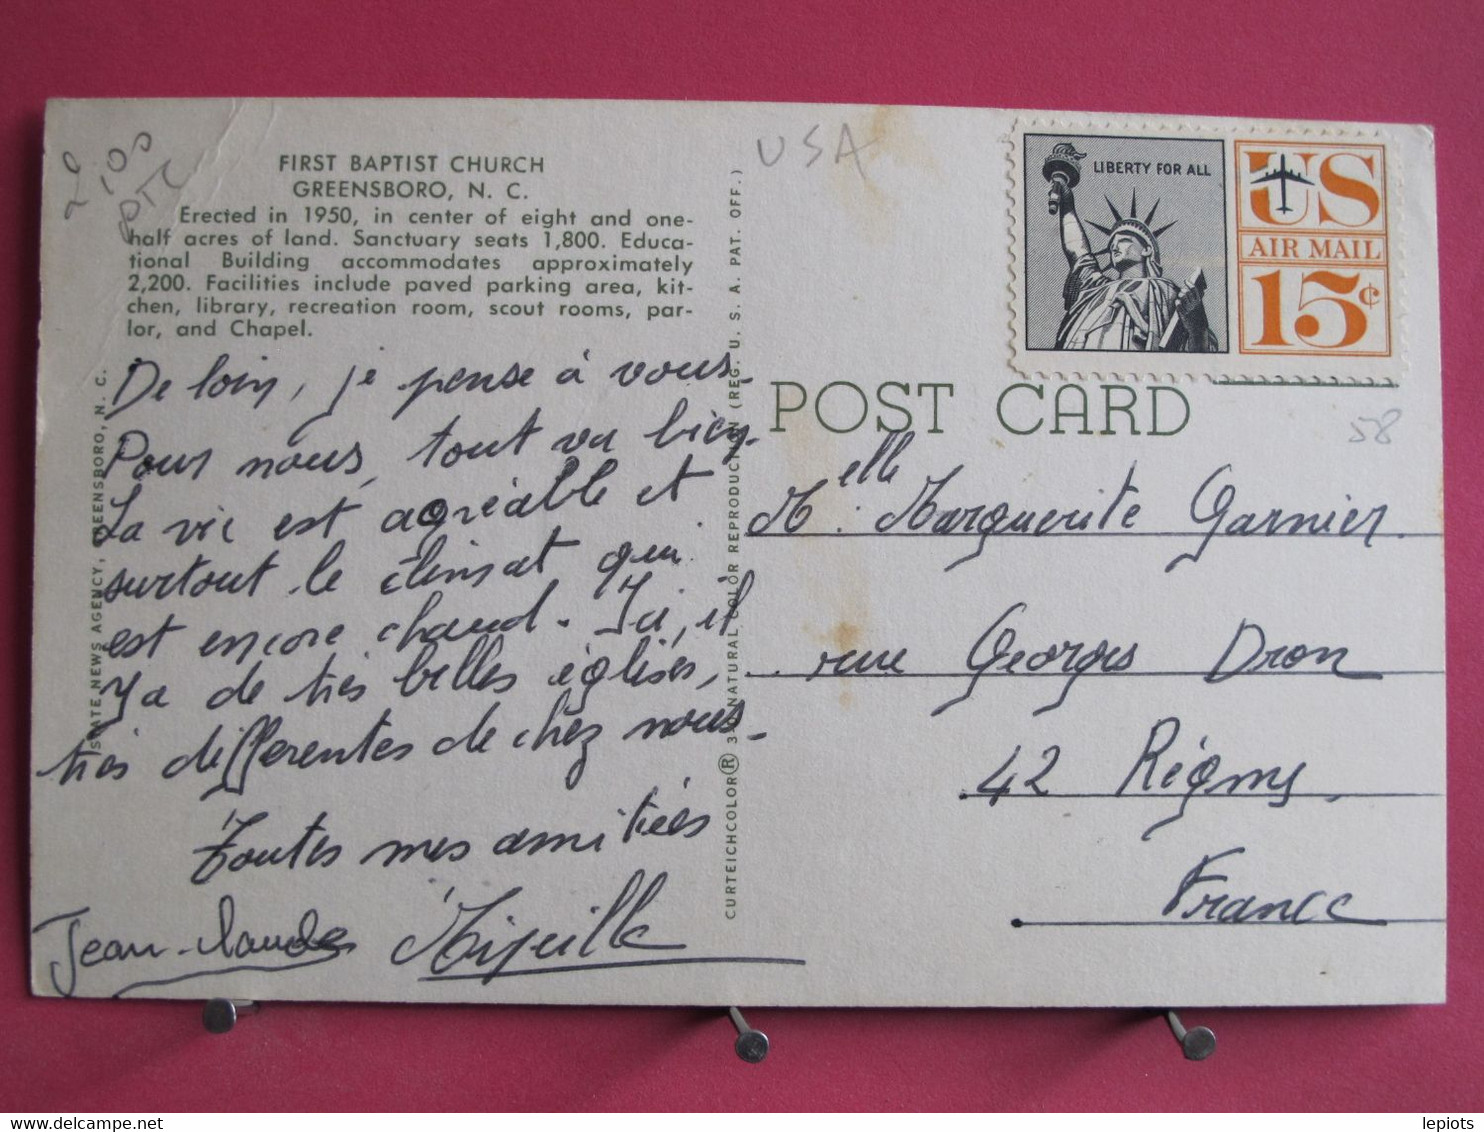 USA
20
100
PTC
FIRST BAPTIST CHURCH
GREENSBORO, N. C.
Erected in 1950, in center of eight and one-
half acres of land. Sanctuary seats 1,800. Educa-
tional Building accommodates approximately
2,200. Facilities include paved parking area, kit-
chen, library, recreation room, scout rooms, par-
lor, and Chapel.
De loin, je pense à vous.
Pour nous, tout va bien.
La vie est agréable et
surtout le climat qui
est encore chaud. Ici, il
y a de très belles églises,
très différentes de chez nous.
Toutes mes amitiés
Jean-Claude Mireille
STATE NEWS AGENCY, GREENSBORO, N. C.
CURTEICHCOLOR® 3-D NATURAL COLOR REPRODUCTION (REG. U. S. A. PAT. OFF.)
LIBERTY FOR ALL
US
AIR MAIL
15¢
POST CARD
58
Melle Marguerite Garnier
rue Georges Dron
42 Régny
France
lepiots